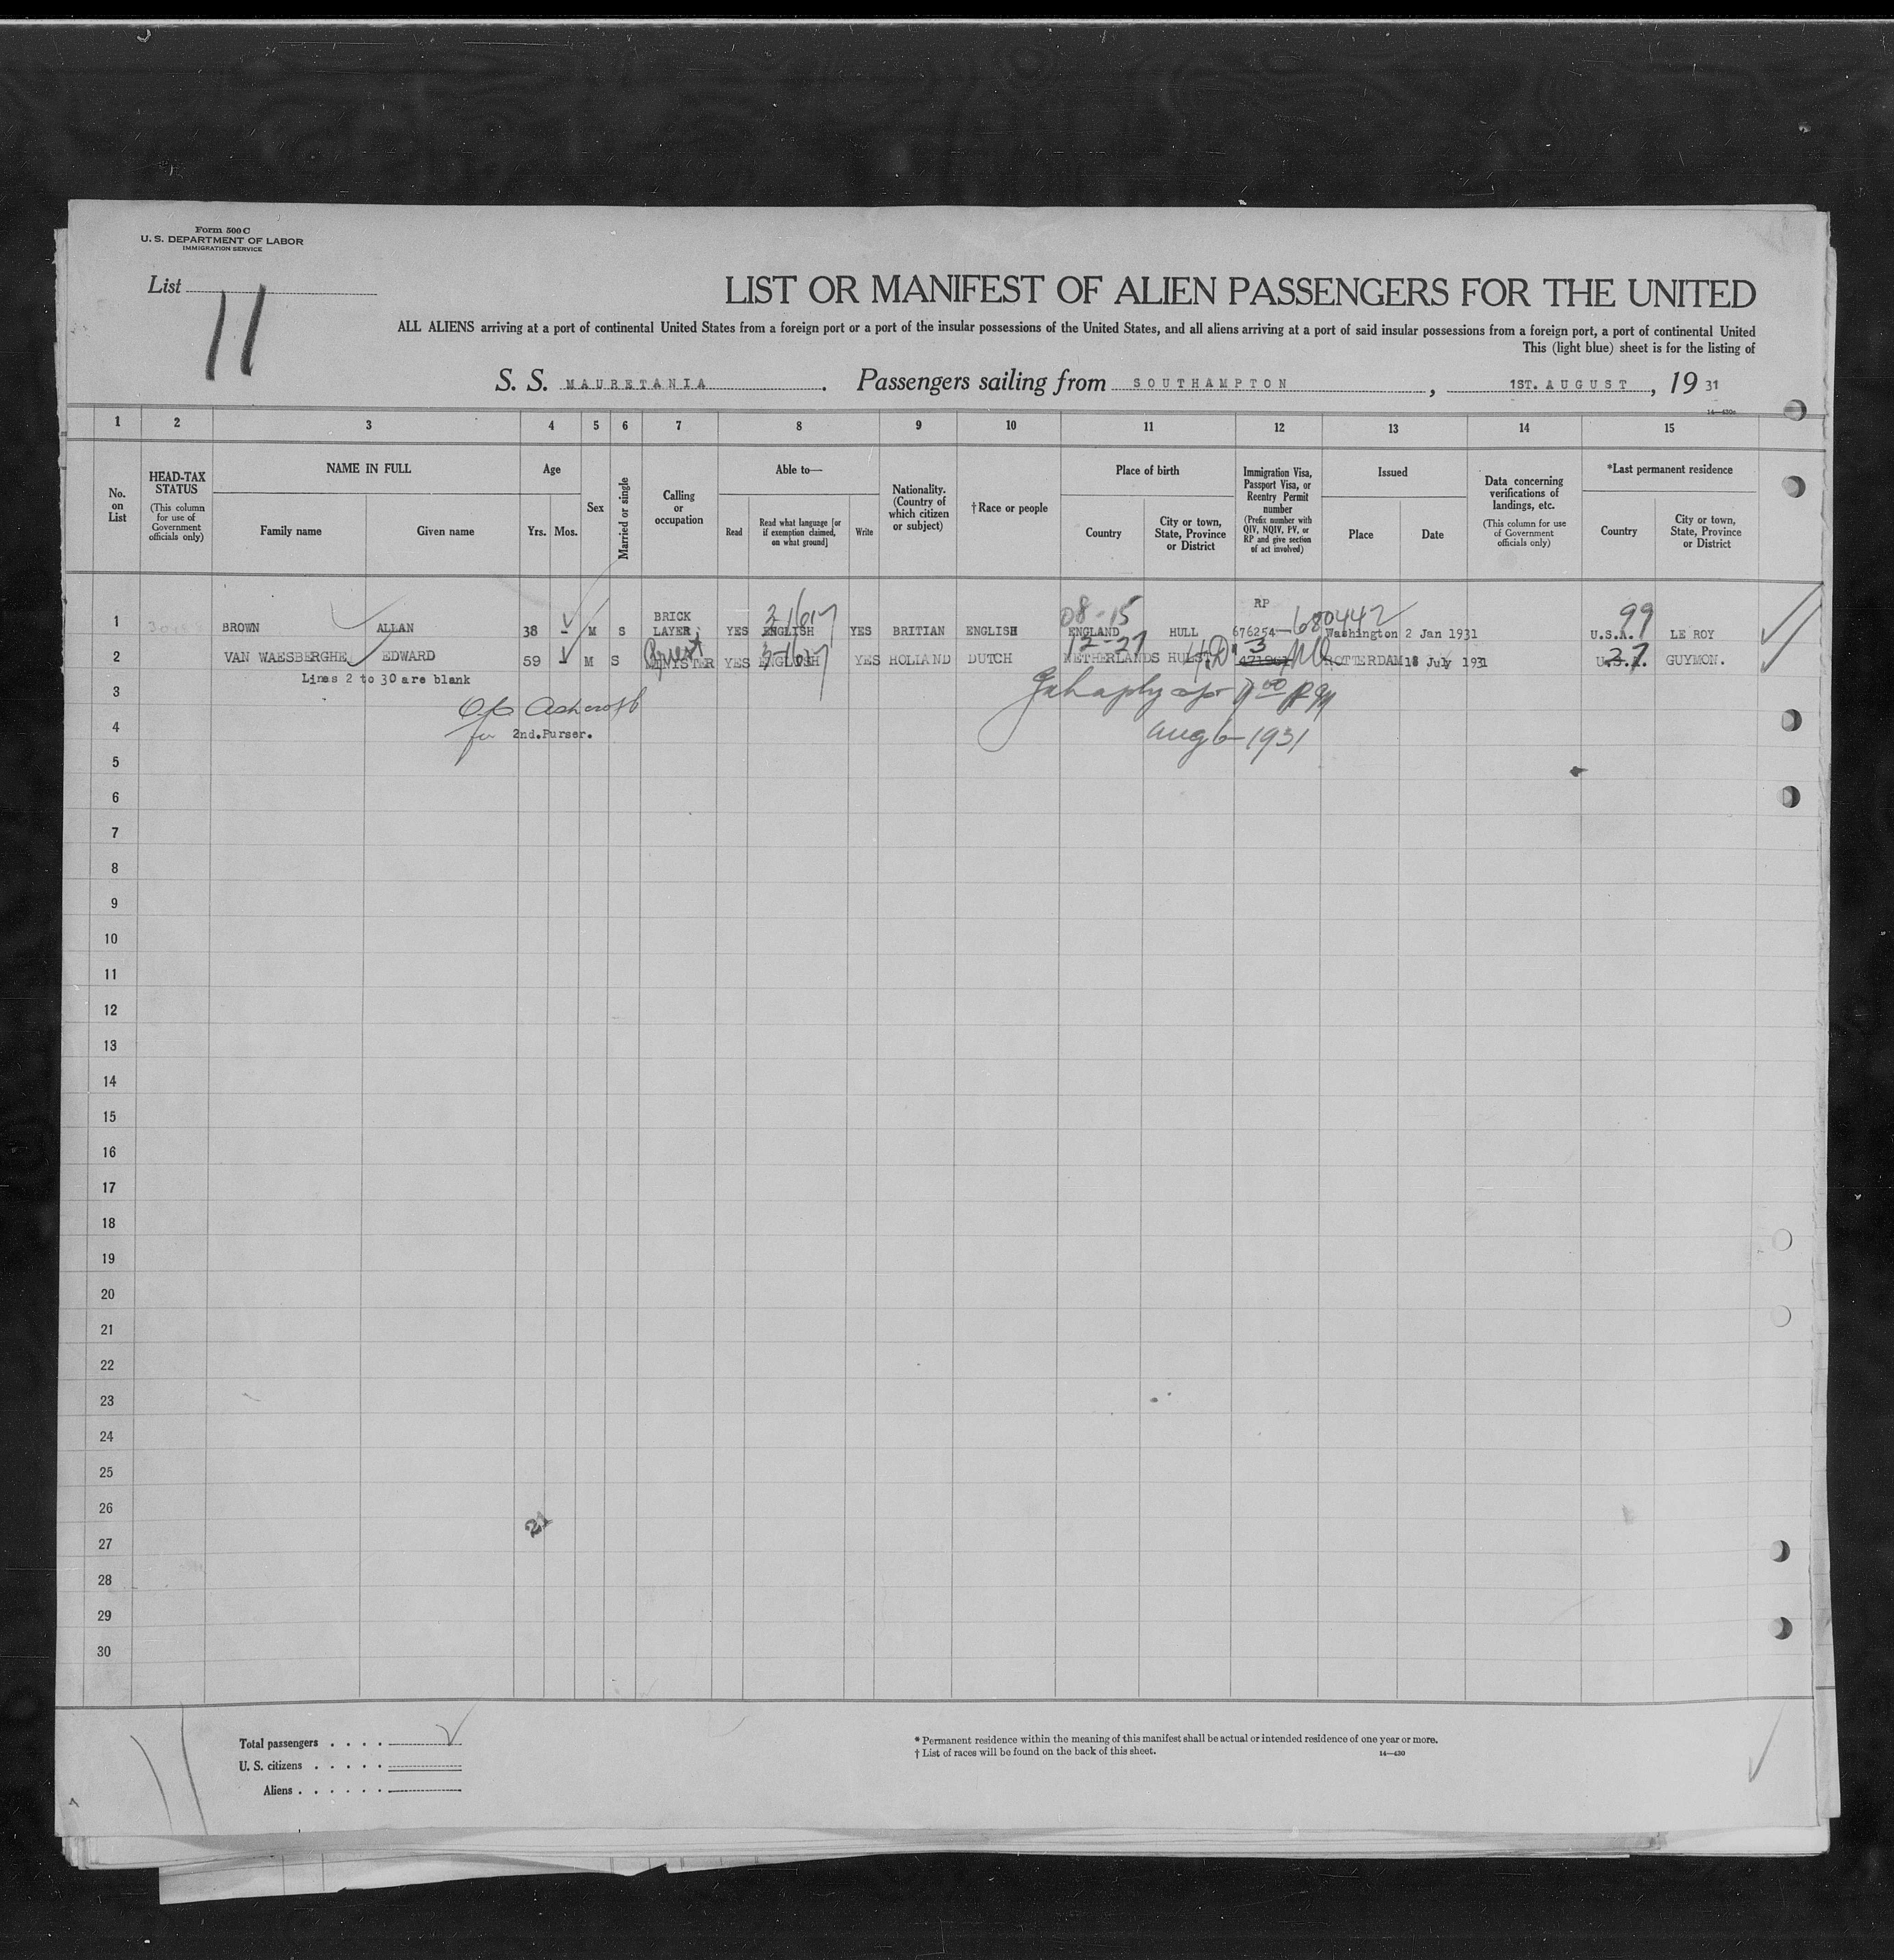 Form 500 C
U. S. DEPARTMENT OF LABOR
IMMIGRATION SERVICE
List
11
LIST OR MANIFEST OF ALIEN PASSENGERS FOR THE UNITED
ALL ALIENS arriving at a port of continental United States from a foreign port or a port of the insular possessions of the United States, and all aliens arriving at a port of said insular possessions from a foreign port, a port of continental United
This (light blue) sheet is for the listing of
S. S. MAURETANIA. Passengers sailing from SOUTHAMPTON, 1ST. AUGUST, 19 31
14—430c
1 2 3 4 5 6 7 8 9 10 11 12 13 14 15
No. on List
HEAD-TAX STATUS
(This column for use of Government officials only)
NAME IN FULL
Family name Given name
Age
Yrs. Mos.
Sex
Married or single
Calling or occupation
Able to—
Read
Read what language [or if exemption claimed, on what ground]
Write
Nationality. (Country of which citizen or subject)
†Race or people
Place of birth
Country
City or town, State, Province or District
Immigration Visa, Passport Visa, or Reentry Permit number
(Prefix number with QIV, NQIV, PV, or RP and give section of act involved)
Issued
Place Date
Data concerning verifications of landings, etc.
(This column for use of Government officials only)
*Last permanent residence
Country
City or town, State, Province or District
08-15 RP 680442 99
1 BROWN ALLAN 38 - M S BRICK LAYER YES ENGLISH YES BRITIAN ENGLISH ENGLAND HULL 676254 Washington 2 Jan 1931 U.S.A. LE ROY
Priest 12-27 3 27
2 VAN WAESBERGHE EDWARD 59 M S MINYSTER YES ENGLISH YES HOLLAND DUTCH NETHERLANDS HULST ROTTERDAM 18 July 1931 U.S.A. GUYMON.
Lines 2 to 30 are blank
3
Ashcroft
4
for 2nd.Purser.
Aug 6-1931
5
6
7
8
9
10
11
12
13
14
15
16
17
18
19
20
21
22
23
24
25
26
21
27
28
29
30
Total passengers . . . .
U. S. citizens . . . . .
Aliens . . . . . .
* Permanent residence within the meaning of this manifest shall be actual or intended residence of one year or more.
† List of races will be found on the back of this sheet.
14—430